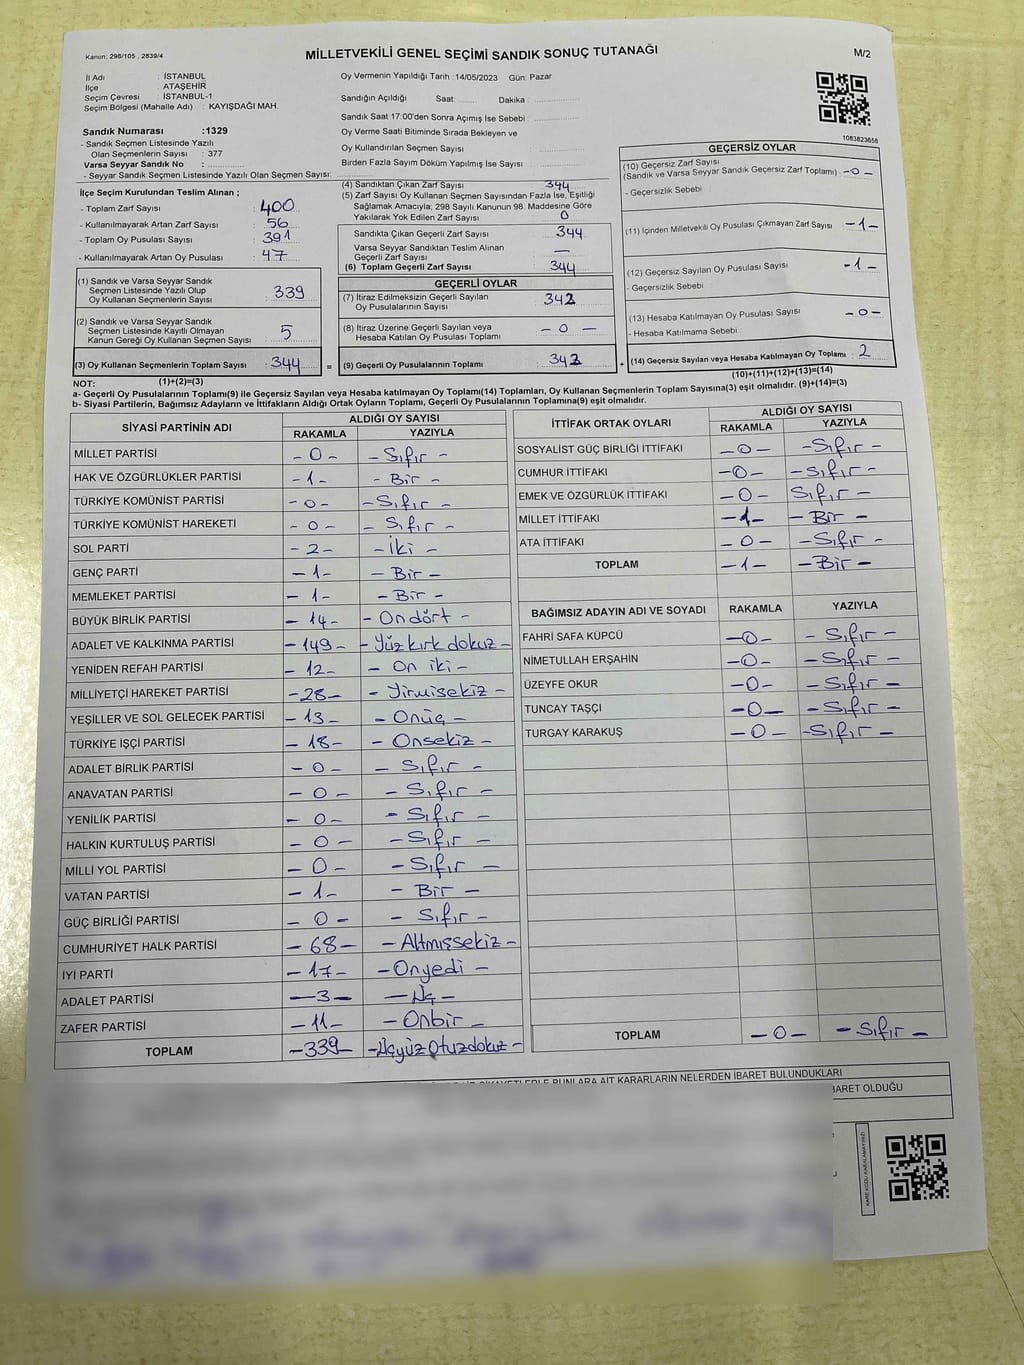 Kanun: 298/105 , 2839/4
MİLLETVEKİLİ GENEL SEÇİMİ SANDIK SONUÇ TUTANAĞI
M/2
İl Adı : İSTANBUL
İlçe : ATAŞEHİR
Seçim Çevresi : İSTANBUL-1
Seçim Bölgesi (Mahalle Adı) : KAYIŞDAĞI MAH.
Sandık Numarası :1329
- Sandık Seçmen Listesinde Yazılı
Olan Seçmenlerin Sayısı : 377
Varsa Seyyar Sandık No :
- Seyyar Sandık Seçmen Listesinde Yazılı Olan Seçmen Sayısı:
Oy Vermenin Yapıldığı Tarih :14/05/2023 Gün: Pazar
Sandığın Açıldığı Saat Dakika :
Sandık Saat 17:00'den Sonra Açımış İse Sebebi :
Oy Verme Saati Bitiminde Sırada Bekleyen ve
Oy Kullandırılan Seçmen Sayısı
Birden Fazla Sayım Döküm Yapılmış İse Sayısı
1083823658
İlçe Seçim Kurulundan Teslim Alınan ;
- Toplam Zarf Sayısı : 400
- Kullanılmayarak Artan Zarf Sayısı : 56
- Toplam Oy Pusulası Sayısı : 391
- Kullanılmayarak Artan Oy Pusulası : 47
(1) Sandık ve Varsa Seyyar Sandık
Seçmen Listesinde Yazılı Olup
Oy Kullanan Seçmenlerin Sayısı : 339
(2) Sandık ve Varsa Seyyar Sandık
Seçmen Listesinde Kayıtlı Olmayan
Kanun Gereği Oy Kullanan Seçmen Sayısı : 5
(3) Oy Kullanan Seçmenlerin Toplam Sayısı : 344 =
(4) Sandıktan Çıkan Zarf Sayısı 344
(5) Zarf Sayısı Oy Kullanan Seçmen Sayısından Fazla İse, Eşitliği
Sağlamak Amacıyla; 298 Sayılı Kanunun 98. Maddesine Göre
Yakılarak Yok Edilen Zarf Sayısı 0
Sandıkta Çıkan Geçerli Zarf Sayısı 344
Varsa Seyyar Sandıktan Teslim Alınan
Geçerli Zarf Sayısı —
(6) Toplam Geçerli Zarf Sayısı 344
GEÇERLİ OYLAR
(7) İtiraz Edilmeksizin Geçerli Sayılan
Oy Pusulalarının Sayısı : 342
(8) İtiraz Üzerine Geçerli Sayılan veya
Hesaba Katılan Oy Pusulası Sayısı : - 0 -
(9) Geçerli Oy Pusulalarının Toplamı : 342 +
GEÇERSİZ OYLAR
(10) Geçersiz Zarf Sayısı
(Sandık ve Varsa Seyyar Sandık Geçersiz Zarf Toplamı) -0-
- Geçersizlik Sebebi
(11) İçinden Milletvekili Oy Pusulası Çıkmayan Zarf Sayısı -1-
(12) Geçersiz Sayılan Oy Pusulası Sayısı -1-
- Geçersizlik Sebebi
(13) Hesaba Katılmayan Oy Pusulası Sayısı -0-
- Hesaba Katılmama Sebebi :
(14) Geçersiz Sayılan veya Hesaba Katılmayan Oy Toplamı : 2
NOT: (1)+(2)=(3)
(10)+(11)+(12)+(13)=(14)
a- Geçerli Oy Pusulalarının Toplamı(9) ile Geçersiz Sayılan veya Hesaba katılmayan Oy Toplamı(14) Toplamları, Oy Kullanan Seçmenlerin Toplam Sayısına(3) eşit olmalıdır. (9)+(14)=(3)
b- Siyasi Partilerin, Bağımsız Adayların ve İttifakların Aldığı Ortak Oyların Toplamı, Geçerli Oy Pusulalarının Toplamına(9) eşit olmalıdır.
SİYASİ PARTİNİN ADI ALDIĞI OY SAYISI
RAKAMLA YAZIYLA
MİLLET PARTİSİ -0- -Sıfır-
HAK VE ÖZGÜRLÜKLER PARTİSİ -1- -Bir-
TÜRKİYE KOMÜNİST PARTİSİ -0- -Sıfır-
TÜRKİYE KOMÜNİST HAREKETİ -0- -Sıfır-
SOL PARTİ -2- -İki-
GENÇ PARTİ -1- -Bir-
MEMLEKET PARTİSİ -1- -Bir-
BÜYÜK BİRLİK PARTİSİ -14- -Ondört-
ADALET VE KALKINMA PARTİSİ -149- -Yüz kırk dokuz-
YENİDEN REFAH PARTİSİ -12- -On iki-
MİLLİYETÇİ HAREKET PARTİSİ -28- -Yirmisekiz-
YEŞİLLER VE SOL GELECEK PARTİSİ -13- -Onüç-
TÜRKİYE İŞÇİ PARTİSİ -18- -Onsekiz-
ADALET BİRLİK PARTİSİ -0- -Sıfır-
ANAVATAN PARTİSİ -0- -Sıfır-
YENİLİK PARTİSİ -0- -Sıfır-
HALKIN KURTULUŞ PARTİSİ -0- -Sıfır-
MİLLİ YOL PARTİSİ -0- -Sıfır-
VATAN PARTİSİ -1- -Bir-
GÜÇ BİRLİĞİ PARTİSİ -0- -Sıfır-
CUMHURİYET HALK PARTİSİ -68- -Altmışsekiz-
İYİ PARTİ -17- -Onyedi-
ADALET PARTİSİ -3- -Üç-
ZAFER PARTİSİ -11- -Onbir-
TOPLAM -339- -Üçyüz Otuzdokuz-
İTTİFAK ORTAK OYLARI ALDIĞI OY SAYISI
RAKAMLA YAZIYLA
SOSYALİST GÜÇ BİRLİĞİ İTTİFAKI -0- -Sıfır-
CUMHUR İTTİFAKI -0- -Sıfır-
EMEK VE ÖZGÜRLÜK İTTİFAKI -0- Sıfır-
MİLLET İTTİFAKI -1- -Bir-
ATA İTTİFAKI -0- -Sıfır-
TOPLAM -1- -Bir-
BAĞIMSIZ ADAYIN ADI VE SOYADI RAKAMLA YAZIYLA
FAHRİ SAFA KÜPCÜ -0- -Sıfır-
NİMETULLAH ERŞAHİN -0- -Sıfır-
ÜZEYFE OKUR -0- -Sıfır-
TUNCAY TAŞÇI -0- -Sıfır-
TURGAY KARAKUŞ -0- -Sıfır-
TOPLAM -0- -Sıfır-
BUNLARA AİT KARARLARIN NELERDEN İBARET BULUNDUKLARI
BARET OLDUĞU
KARE KODU KARALAMAYINIZ!